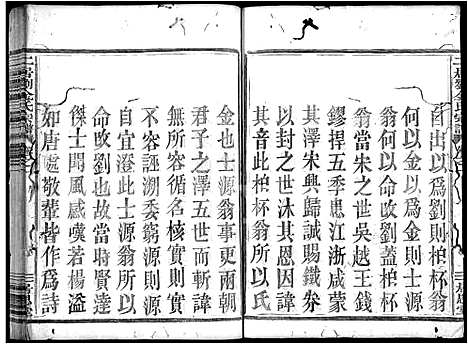 自出以為劉則柏杯翁
何以金以為金則士源
翁何以命改劉柏杯
翁當朱之世吳越王錢
鏐捍五季患江浙咸蒙
其澤宋興歸誠賜鐵券
以封之世沐其恩因諱
者柏杯翁所以以氏
金也士源翁事更兩朝
君子之澤五世而斬諱
所不容循名核實則實
不容誣溯委窮源則源
自宜澄此士源翁所以
命改劉也故當時賢達
傑士聞風感嘆若楊溢
如唐處敬輩皆作為詩